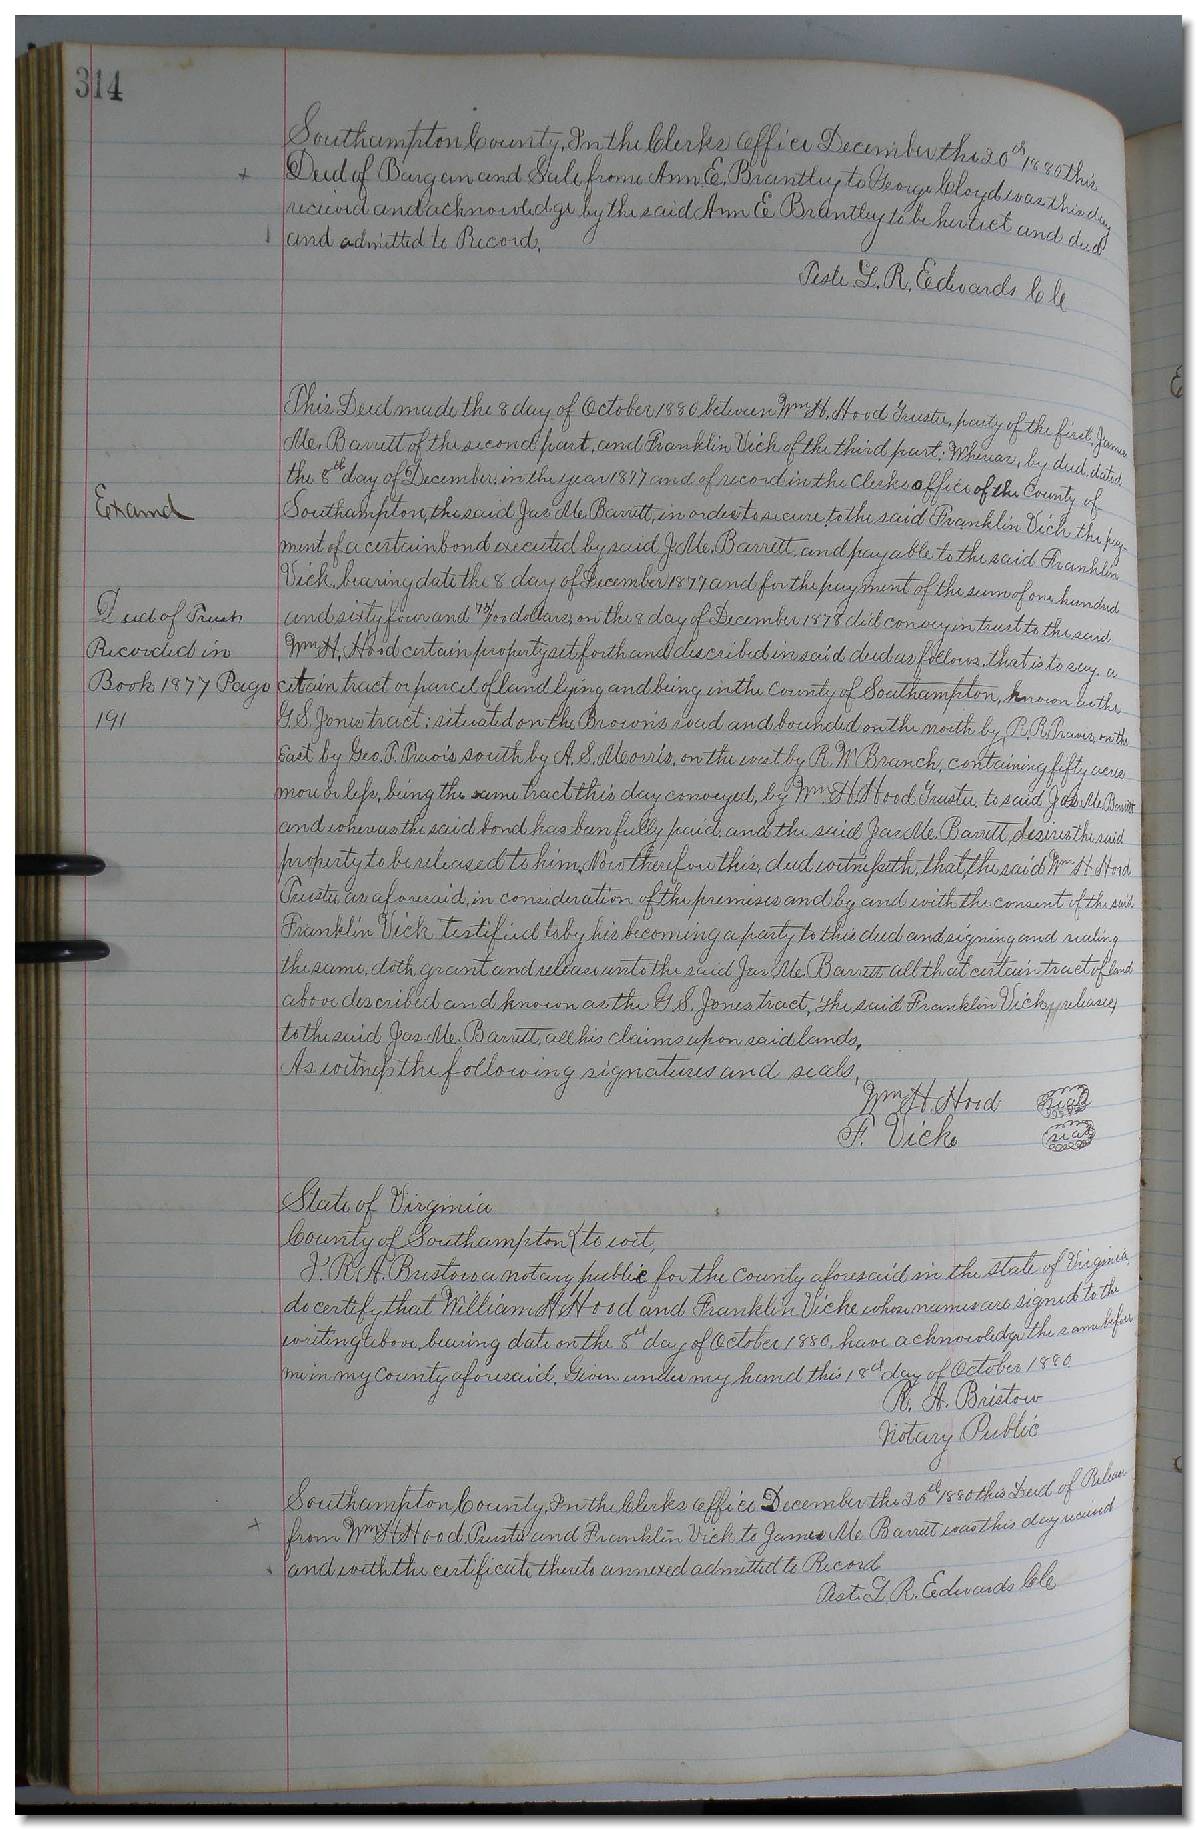 314
Southampton County, In the Clerks office December the 20th 1880 this
Deed of Bargan and Sale frome Ann E. Brantley to George Cloyd was this day
recieved and acknowledge by the said Ann E Brantley to be her act and deed
and admitted to Record,
Teste L. R. Edwards C C
This Deed made the 8 day of October 1880 between Wm H. Hood Trustee, party of the first, James
Mc. Barrett of the second part, and Franklin Vick of the third part; Whereas, by deed dated
the 8th day of December, in the year 1877 and of record in the Clerks office of the County of
Examd
Southampton, the said Jas Mc Barrett, in order to secure to the said Franklin Vick the pay-
ment of a certain bond executed by said J. Mc. Barrett, and payable to the said Franklin
Vick, bearing date the 8 day of December 1877 and for the payment of the sum of one hundred
Deed of Trust
and sixty four and /100 dollars, on the 8 day of December 1878 did convey in trust to the said
Recorded in
Wm H. Hood certain property set forth and discribed in said deed as follows, that is to say. a
Book 1877 Page
cetain tract or parcel of land lying and being in the County of Southampton, known as the
191
G. S. Jones tract; situated on the Browns road and bounded on the north by P. R. Travis, on the
East by Geo. T. Travis south by A. S. Morris, on the west by R. W Branch, containing fifty acres
more or less, being the same tract this day conveyed, by Wm H. Hood Trustee, to said Jas Mc Barrett
and whereas the said bond has ben fully paid, and the said Jas Mc. Barrett, desires the said
property to be released to him, Now therefore this, deed witnesseth, that, the said Wm H Hood
Trustee as aforesaid, in consideration of the premises and by and with the consent of the said
Franklin Vick testified to by his becoming a party to this deed and signing and sealing
the same, doth, grant and release unto the said Jas. Mc. Barrett all that certain tract of land
above described and known as the G. S. Jones tract, The said Franklin Vick releases
to the said Jas. Mc. Barrett, all his claims upon said lands,
As witness the following signatures and seals,
Wm H. Hood seal
F. Vick seal
State of Virginia
County of Southampton } to wit,
I. R. A. Bristow a notary public for the county aforesaid in the state of Virginia,
do certify that William H Hood and Franklin Vick whose names are signed to the
writing above, bearing date on the 8th day of October 1880, have acknowledge the same before
me in my County aforesaid, Given under my hand this 18th day of October 1880
R. A. Bristow
Notary Public
Southampton County, In the Clerks office December the 20th 1880 this Deed of Release
from Wm H Hood Trustee and Franklin Vick to James Mc Barrett was this day recieved
and with the certificate thereto annexed admitted to Record
Test. L. R. Edwards C C